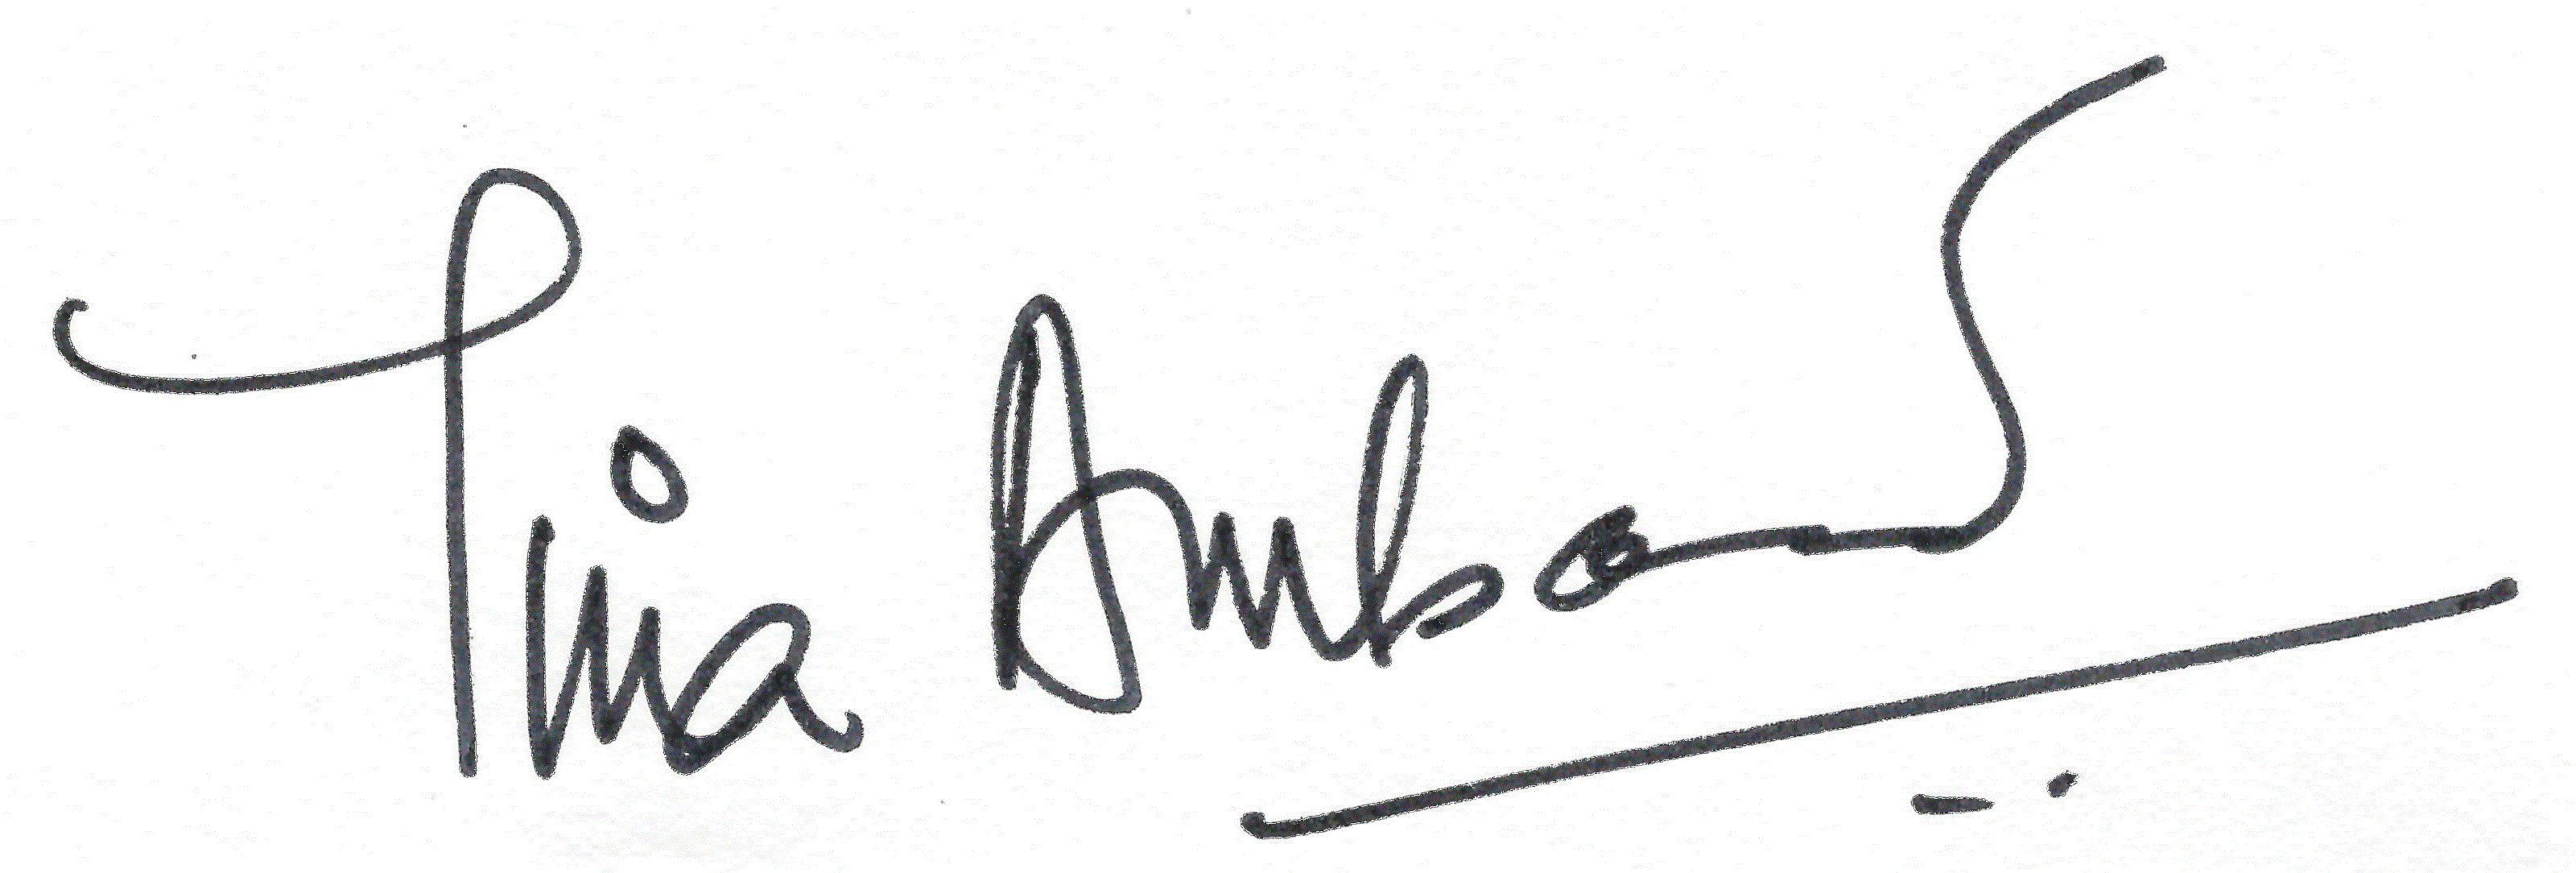 Tina Ambani